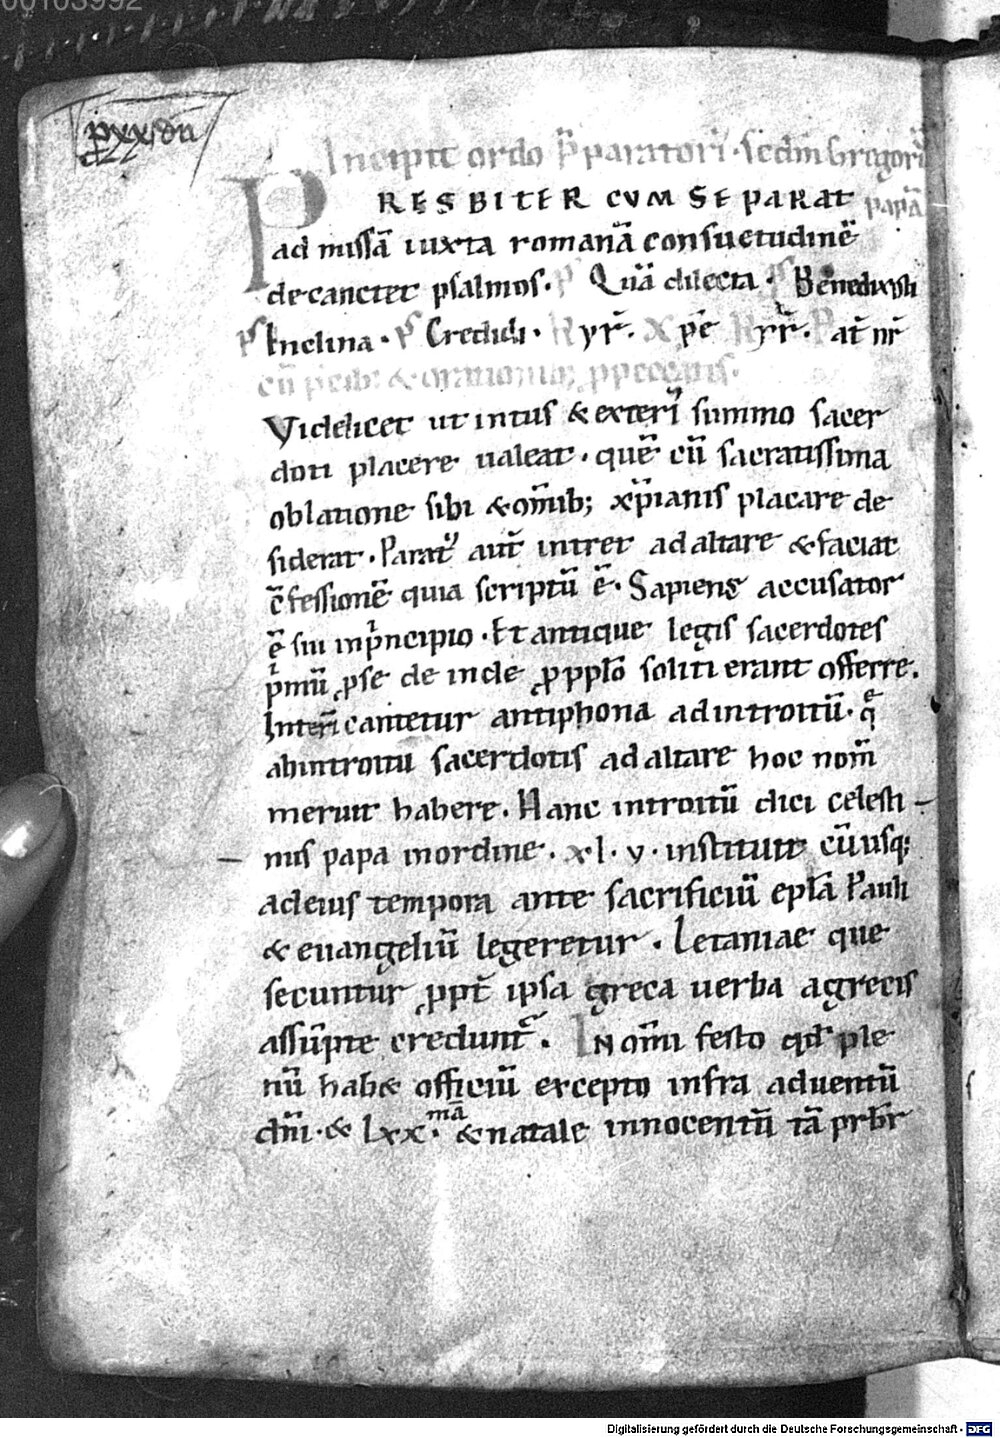 00103992
pxx du
Incipit ordo p̄paratorī · sc̄dm Gregoriū
papā
PRESBITER CVM SE PARAT
ad missā iuxta romanā consuetudinē
decantet psalmos. p̄s Quā dilecta · p̄s Benedixisti
p̄s Inclina · p̄s Credidi · Kyrł. Xp̄e Kyrł. Pat̄ nr̄
cū p̄cib; & orationib;
Videlicet ut intus & exteri summo sacer
doti placere ualeat, quē cū sacratissima
oblatione sibi & om̄ib; xp̄ianis placare de
siderat. Parat᾽ aut̄ intret ad altare & faciat
c̄fessionē quia scriptū ē. Sapiens accusator
ē sui inp̄ncipio. Et antique legis sacerdotes
p̄mū ꝓse de inde ꝓpp̄lo soliti erant offerre.
Interī cantetur antiphona ad introitū. q̄
abintroitu sacerdotis ad altare hoc nom̄
meruit habere. Hanc introitū dici celesti
nus papa inordine. xl. v. instituit cū usq;
adeius tempora ante sacrificiū epl̄a Pauli
& euangeliū legeretur. Letaniae que
secuntur ꝓpt̄ ipsa greca uerba agrecis
assūpte credunt᾽. IN om̄i festo qd̄ ple
nū hab& officiū excepto infra aduentū
dn̄i. & Lxx.mā & natale innocentū tā prb̄r
Digitalisierung gefördert durch die Deutsche Forschungsgemeinschaft - DFG